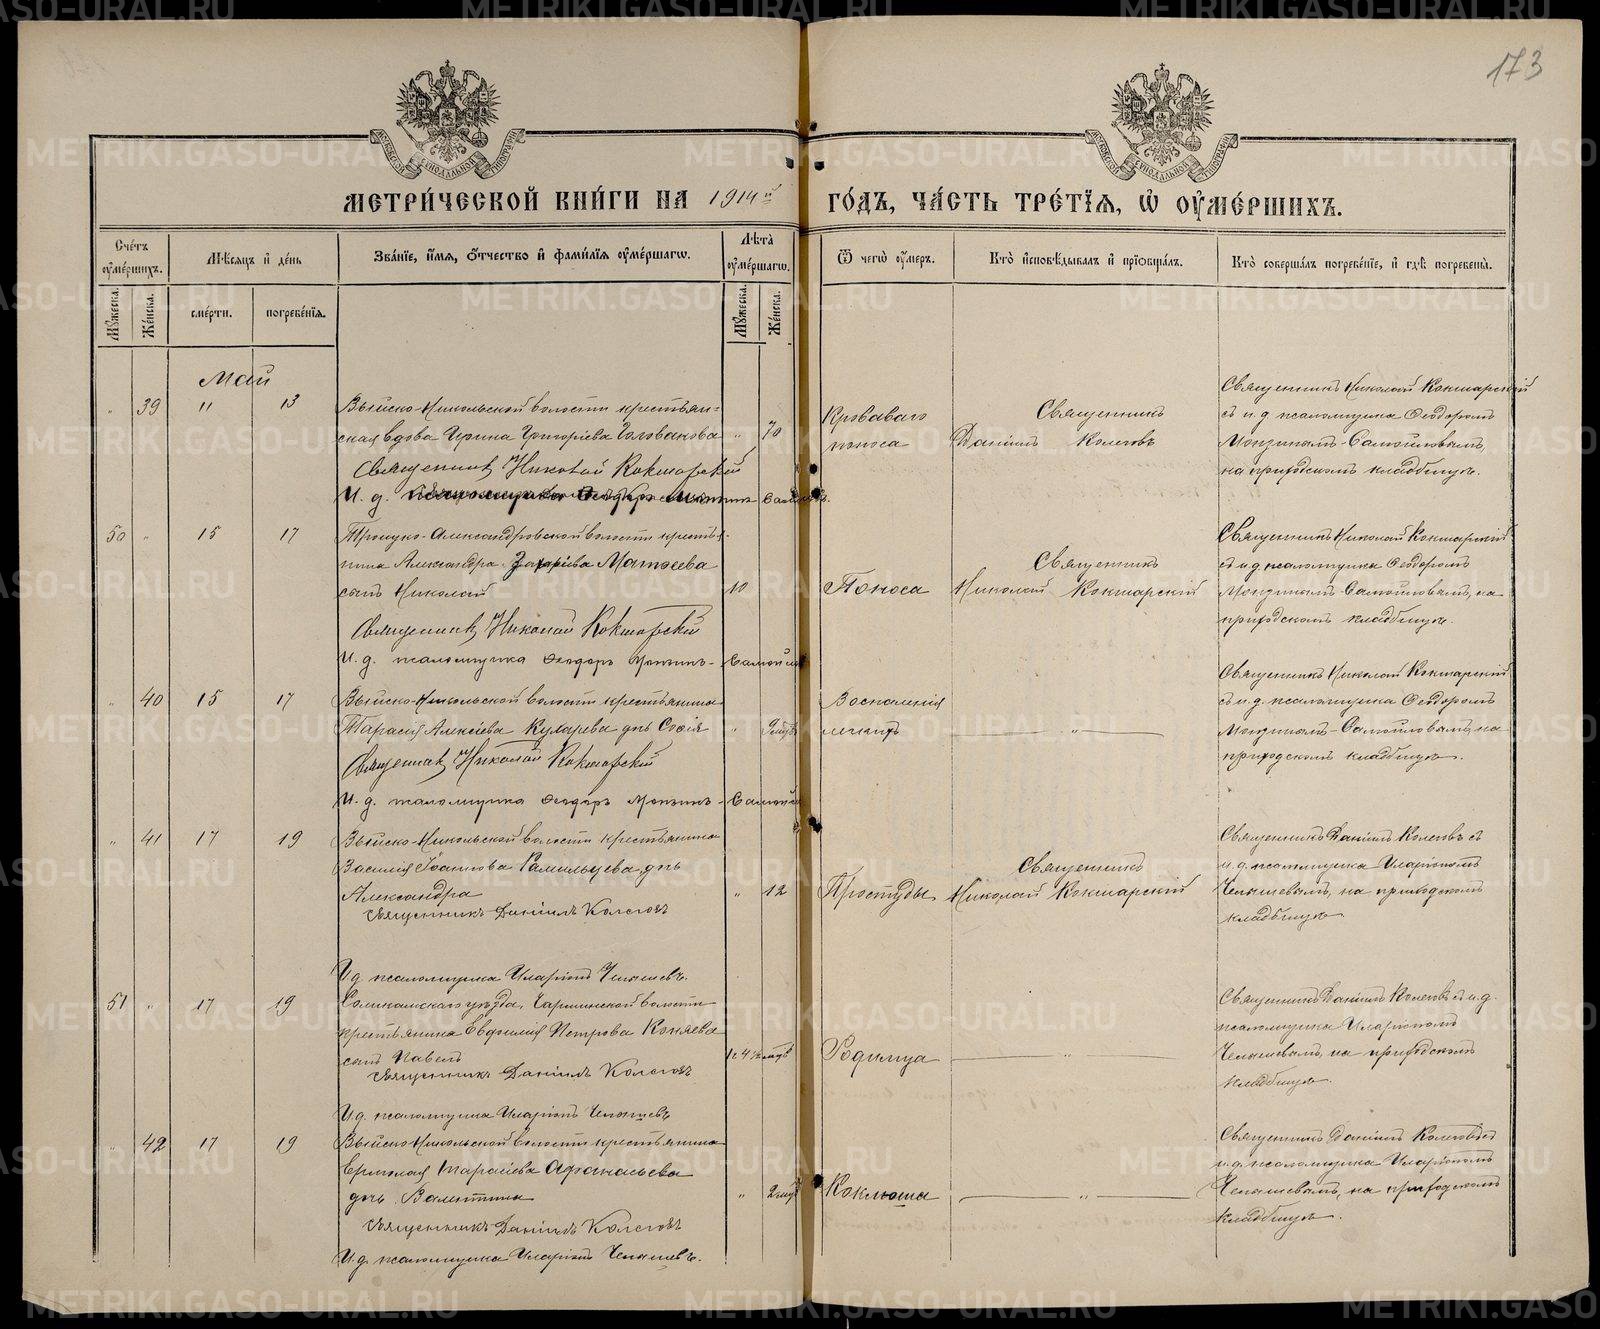 173
МОСКОВСКОЙ СѴНОДАЛЬНОЙ ТИПОГРАФІИ
МОСКОВСКОЙ СѴНОДАЛЬНОЙ ТИПОГРАФІИ
МЕТРИ́ЧЕСКОЙ КНИ́ГИ НА 1914й ГО́ДЪ, ЧА́СТЬ ТРЕ́ТІѦ, Ѡ ОУМЕ́РШИХЪ.
Сче́тъ оуме́ршихъ.
Мѣ́сяцъ и де́нь
Зва́нїе, и́мя, о́тчество и фами́лїя оуме́ршагѡ.
Лѣта̀ оуме́ршагѡ.
Ѿ чегѡ̀ оу́меръ.
Кто̀ исповѣ́дывалъ и прїѡбща́лъ.
Кто̀ соверша́лъ погребе́нїе, и гдѣ̀ погребены̀.
Му́жеска.
Же́нска.
сме́рти.
погребе́нїя.
Му́жеска.
Же́нска.
Май
" 39 11 13
Выйско-Никольской волости крестьян=
ская вдова Ирина Григорiева Голованова " 70
Священникъ Николай Кокшарскiй
И. д. псаломщика Ѳеодоръ
Кроваваго
поноса
Священникъ
Данiилъ Колеговъ
Священникъ Николай Кокшарскiй
съ и. д. псаломщика Ѳеодоромъ
Монзинымъ-Самойловымъ,
на приходскомъ кладбищѣ.
50 " 15 17
Троицко-Александровской волости крестья-
нина Александра Захарiева Матѳеева
сынъ Николай 10
Священникъ Николай Кокшарскiй
И. д. псаломщика Ѳеодоръ Монзинъ-Самойловъ
Поноса
Священникъ
Николай Кокшарскiй
Священникъ Николай Кокшарскiй
съ и. д. псаломщика Ѳеодоромъ
Монзинымъ-Самойловымъ, на
приходскомъ кладбищѣ.
" 40 15 17
Выйско-Никольской волости крестьянина
Тарасiя Алексiева Куларева дчь Софiя "
Священникъ Николай Кокшарскiй
И. д. псаломщика Ѳеодоръ Монзинъ-Самойловъ
Воспаленiя
легкихъ
"
Священникъ Николай Кокшарскiй
съ и. д. псаломщика Ѳеодоромъ
Монзинымъ-Самойловымъ, на
приходскомъ кладбищѣ.
" 41 17 19
Выйско-Никольской волости крестьянина
Василiя Iоаннова дчь
Александра " 12
Священникъ Данiилъ Колеговъ
И. д. псаломщика Иларiонъ Челышевъ.
Простуды
Священникъ
Николай Кокшарскiй
Священникъ Данiилъ Колеговъ съ
и. д. псаломщика Иларiономъ
Челышевымъ, на приходскомъ
кладбищѣ
51 " 17 19
Соликамскаго уѣзда, волости
крестьянина Евфимiя Петрова Коняева
сынъ Павелъ
Священникъ Данiилъ Колеговъ
И. д. псаломщика Иларiонъ Челышевъ
Родимца
"
Священникъ Данiилъ Колеговъ съ и. д.
псаломщика Иларiономъ
Челышевымъ, на приходскомъ
кладбищѣ.
" 42 17 19
Выйско-Никольской волости крестьянина
Ермолая Тарасiева Аѳанасьева
дочь Валентина "
Священникъ Данiилъ Колеговъ
И. д. псаломщика Иларiонъ Челышевъ.
Коклюша
"
Священникъ Данiилъ Колеговъ съ
и. д. псаломщика Иларiономъ
Челышевымъ, на приходскомъ
кладбищѣ.
METRIKI.GASO-URAL.RU